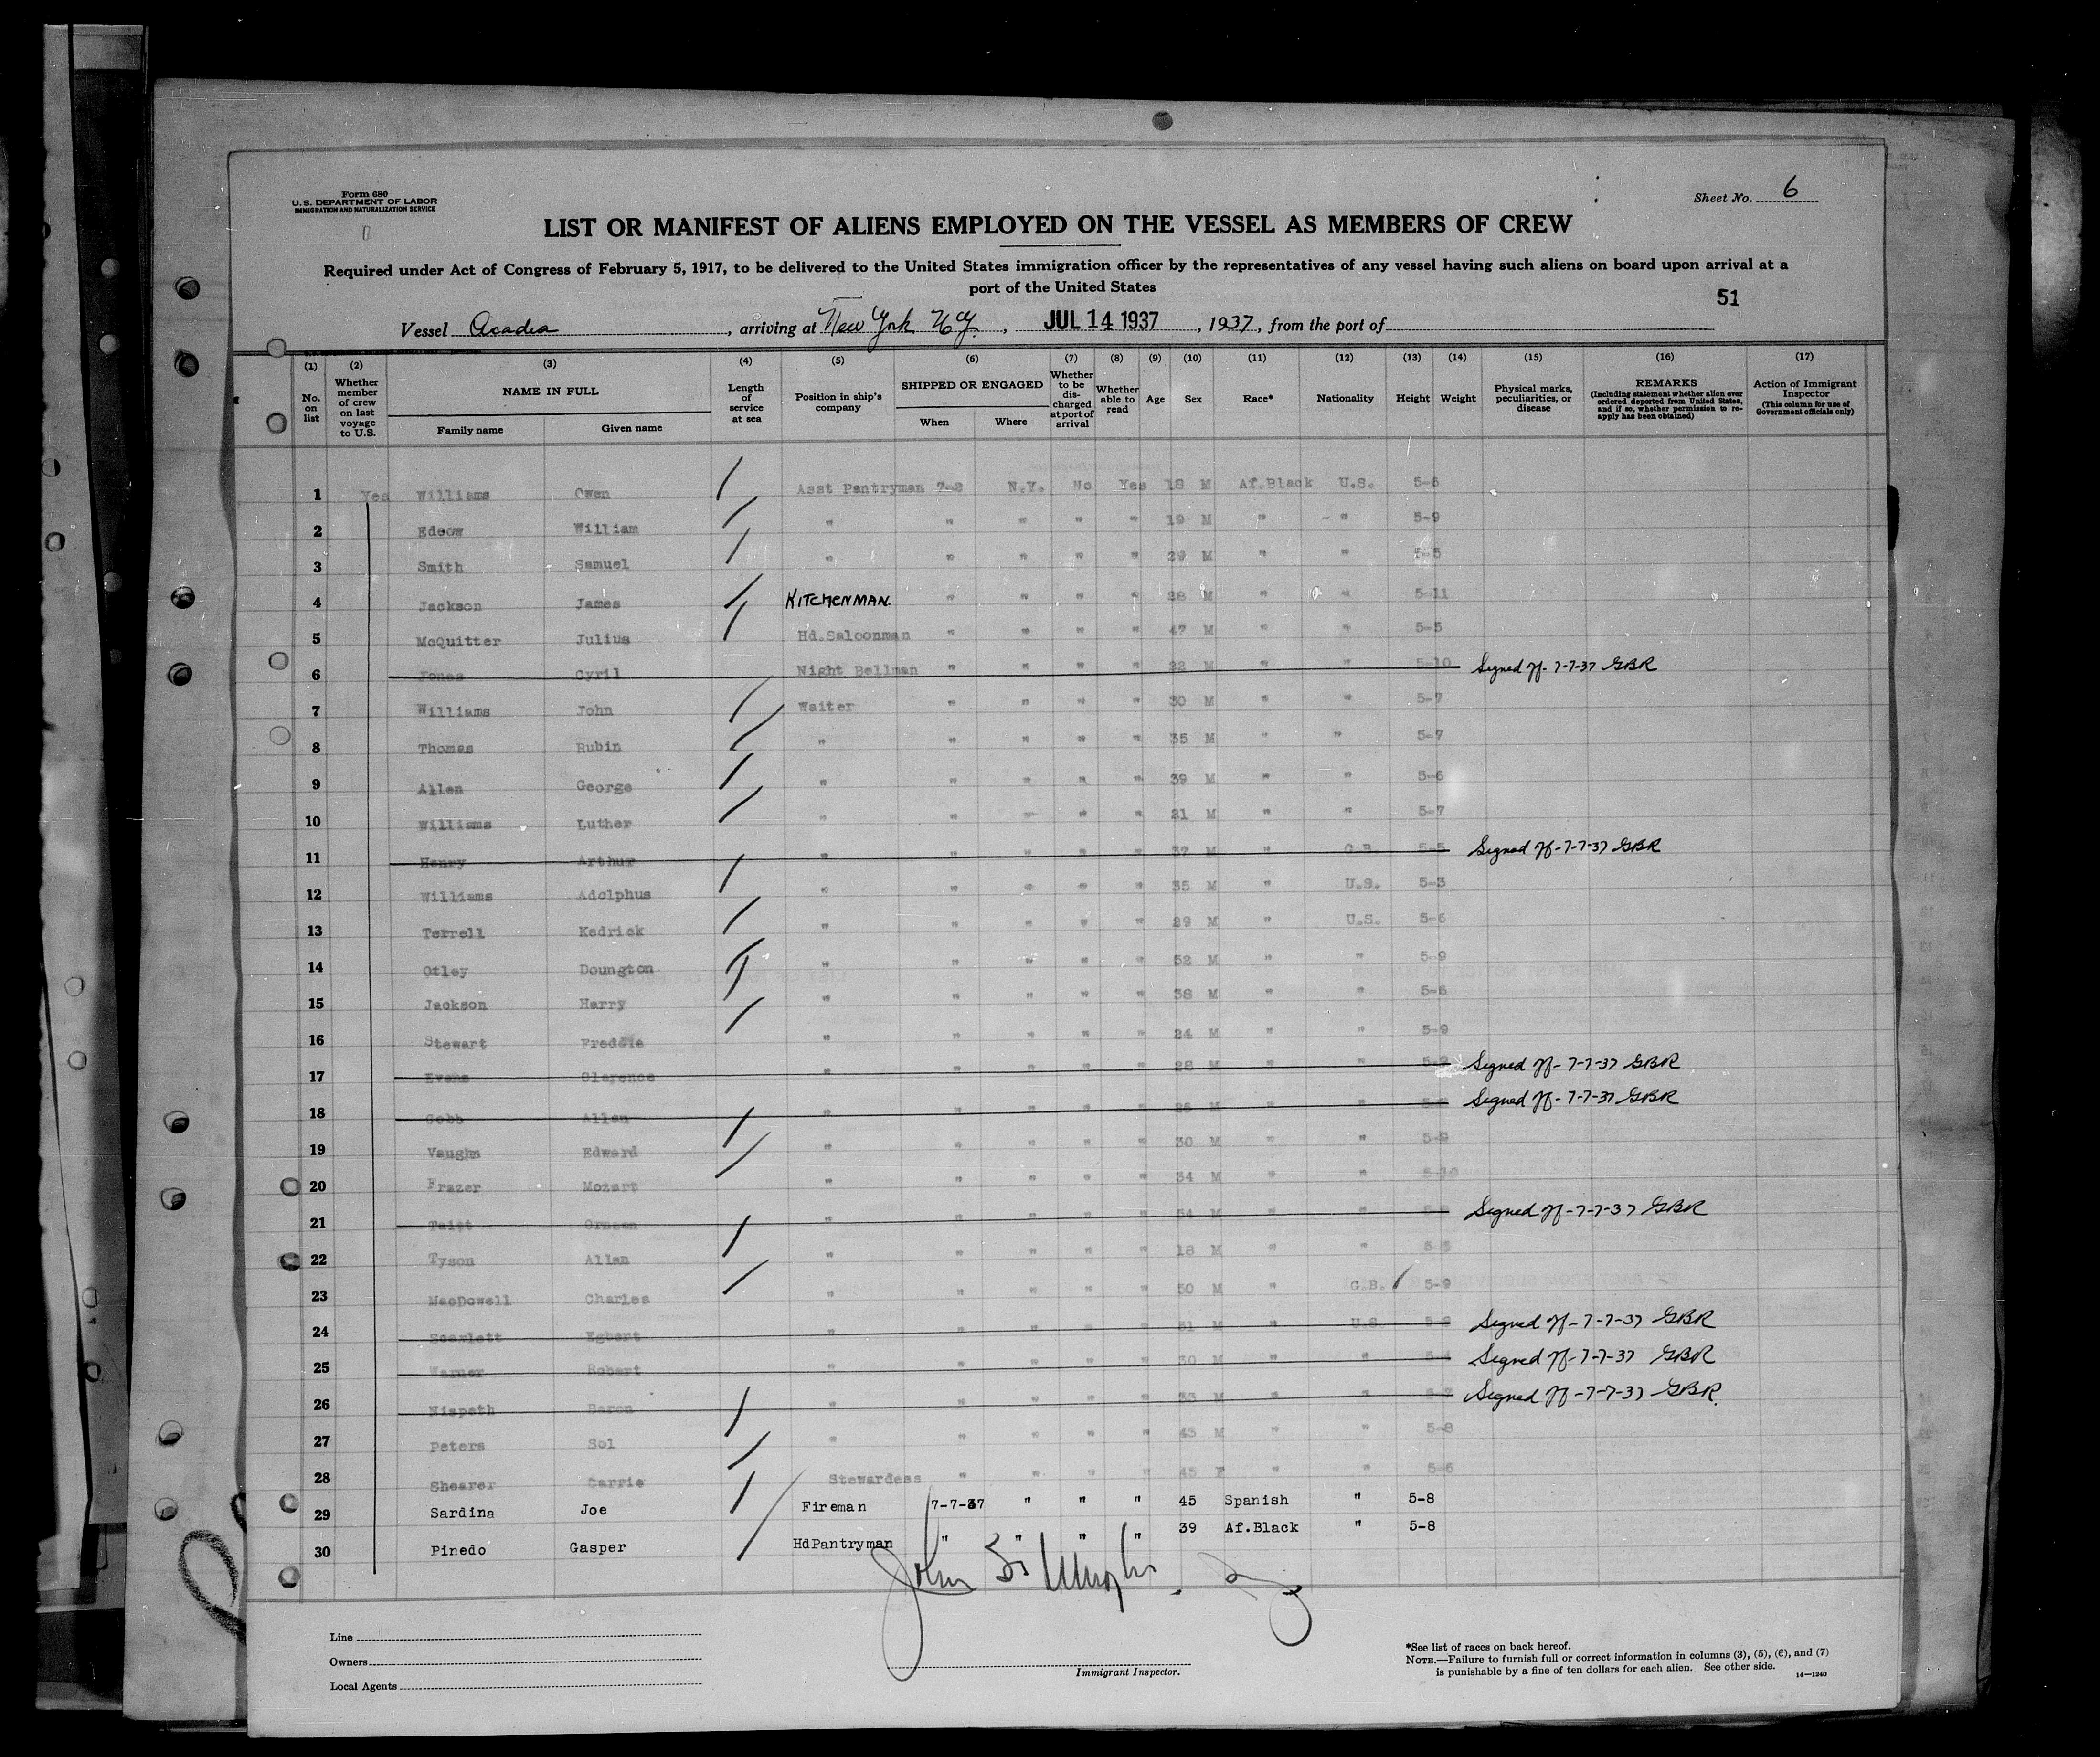 Form 680
U. S. DEPARTMENT OF LABOR
IMMIGRATION AND NATURALIZATION SERVICE
Sheet No. 6
LIST OR MANIFEST OF ALIENS EMPLOYED ON THE VESSEL AS MEMBERS OF CREW
Required under Act of Congress of February 5, 1917, to be delivered to the United States immigration officer by the representatives of any vessel having such aliens on board upon arrival at a
port of the United States
51
Vessel Acadia, arriving at New York NY, JUL 14 1937, 1937, from the port of
(1) (2) (3) (4) (5) (6) (7) (8) (9) (10) (11) (12) (13) (14) (15) (16) (17)
No. on list
Whether member of crew on last voyage to U.S.
NAME IN FULL
Family name Given name
Length of service at sea
Position in ship's company
SHIPPED OR ENGAGED
When Where
Whether to be discharged at port of arrival
Whether able to read
Age
Sex
Race*
Nationality
Height
Weight
Physical marks, peculiarities, or disease
REMARKS
(Including statement whether alien ever ordered deported from United States, and if so, whether permission to reapply has been obtained)
Action of Immigrant Inspector
(This column for use of Government officials only)
1 Yes Williams Owen Asst Pantryman 7-2 N.Y. No Yes 18 M Af.Black U.S. 5-6
2 Edcow William " " " " " 19 M " " 5-9
3 Smith Samuel " " " " " 29 M " " 5-5
4 Jackson James KITCHENMAN. " " " " 28 M " " 5-11
5 McQuitter Julius Hd.Saloonman " " " " 47 M " " 5-5
6 Jones Cyril Night Bellman " " " " 22 M " " 5-10 Signed off-7-7-37 GBR
7 Williams John Waiter " " " " 30 M " " 5-7
8 Thomas Rubin " " " " " 35 M " " 5-7
9 Allen George " " " " " 39 M " " 5-6
10 Williams Luther " " " " " 21 M " " 5-7
11 Henry Arthur " " " " " 37 M " G.B. 5-5 Signed off-7-7-37 GBR
12 Williams Adolphus " " " " " 35 M " U.S. 5-3
13 Terrell Kedrick " " " " " 29 M " U.S. 5-6
14 Otley Doungton " " " " " 52 M " " 5-9
15 Jackson Harry " " " " " 38 M " " 5-6
16 Stewart Freddie " " " " " 24 M " " 5-9
17 Evans Clarence " " " " " 28 M " " Signed off-7-7-37 GBR
18 Cobb Allen " " " " " M " " Signed off-7-7-37 GBR
19 Vaughn Edward " " " " " 30 M " " 5-9
20 Frazer Mozart " " " " " 34 M " " 5-10
21 " " " " " 54 M " " Signed off-7-7-37 GBR
22 Tyson Allan " " " " " 18 M " " 5-5
23 MacDowell Charles " " " " " 50 M " G.B. 5-9
24 Scarlett Egbert " " " " " 51 M " U.S. Signed off-7-7-37 GBR
25 Warner Robert " " " " " 30 M " " Signed off-7-7-37 GBR
26 Nispeth Baron " " " " " 33 M " " Signed off-7-7-37 GBR.
27 Peters Sol " " " " " 43 M " " 5-8
28 Shearer Carrie Stewardess " " " " 45 F " " 5-6
29 Sardina Joe Fireman 7-7-37 " " " 45 Spanish " 5-8
30 Pinedo Gasper HdPantryman " " " " 39 Af.Black " 5-8
Line
Owners
Local Agents
Immigrant Inspector.
*See list of races on back hereof.
NOTE.—Failure to furnish full or correct information in columns (3), (5), (6), and (7)
is punishable by a fine of ten dollars for each alien. See other side.
14—1240